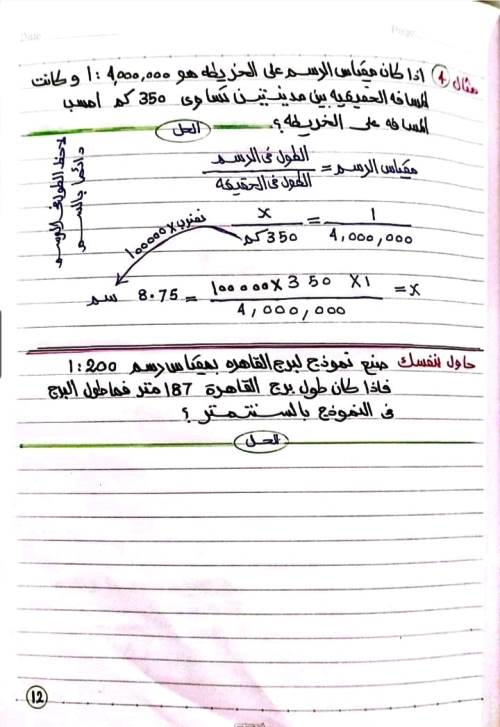 Date
مثال 4 اذا كان مقياس الرسم على الخريطه هو 4,000,000 : 1 و كانت
المسافه الحقيقيه بين مدينتين تساوى 350 كم احسب
المسافه على الخريطه ؟
الحل
لاحظ الطول فى الرسم
دائمًا بالسم
مقياس الرسم = الطول فى الرسم / الطول فى الحقيقه
1 / 4,000,000 = x / 350 كم
نضرب x 100000
x = 1 x 350 x 100000 / 4,000,000 = 8.75 سم
حاول بنفسك صنع نموذج لبرج القاهره بمقياس رسم 200 : 1
فاذا كان طول برج القاهرة 187 متر فما طول البرج
فى النموذج بالسنتمتر ؟
الحل
12